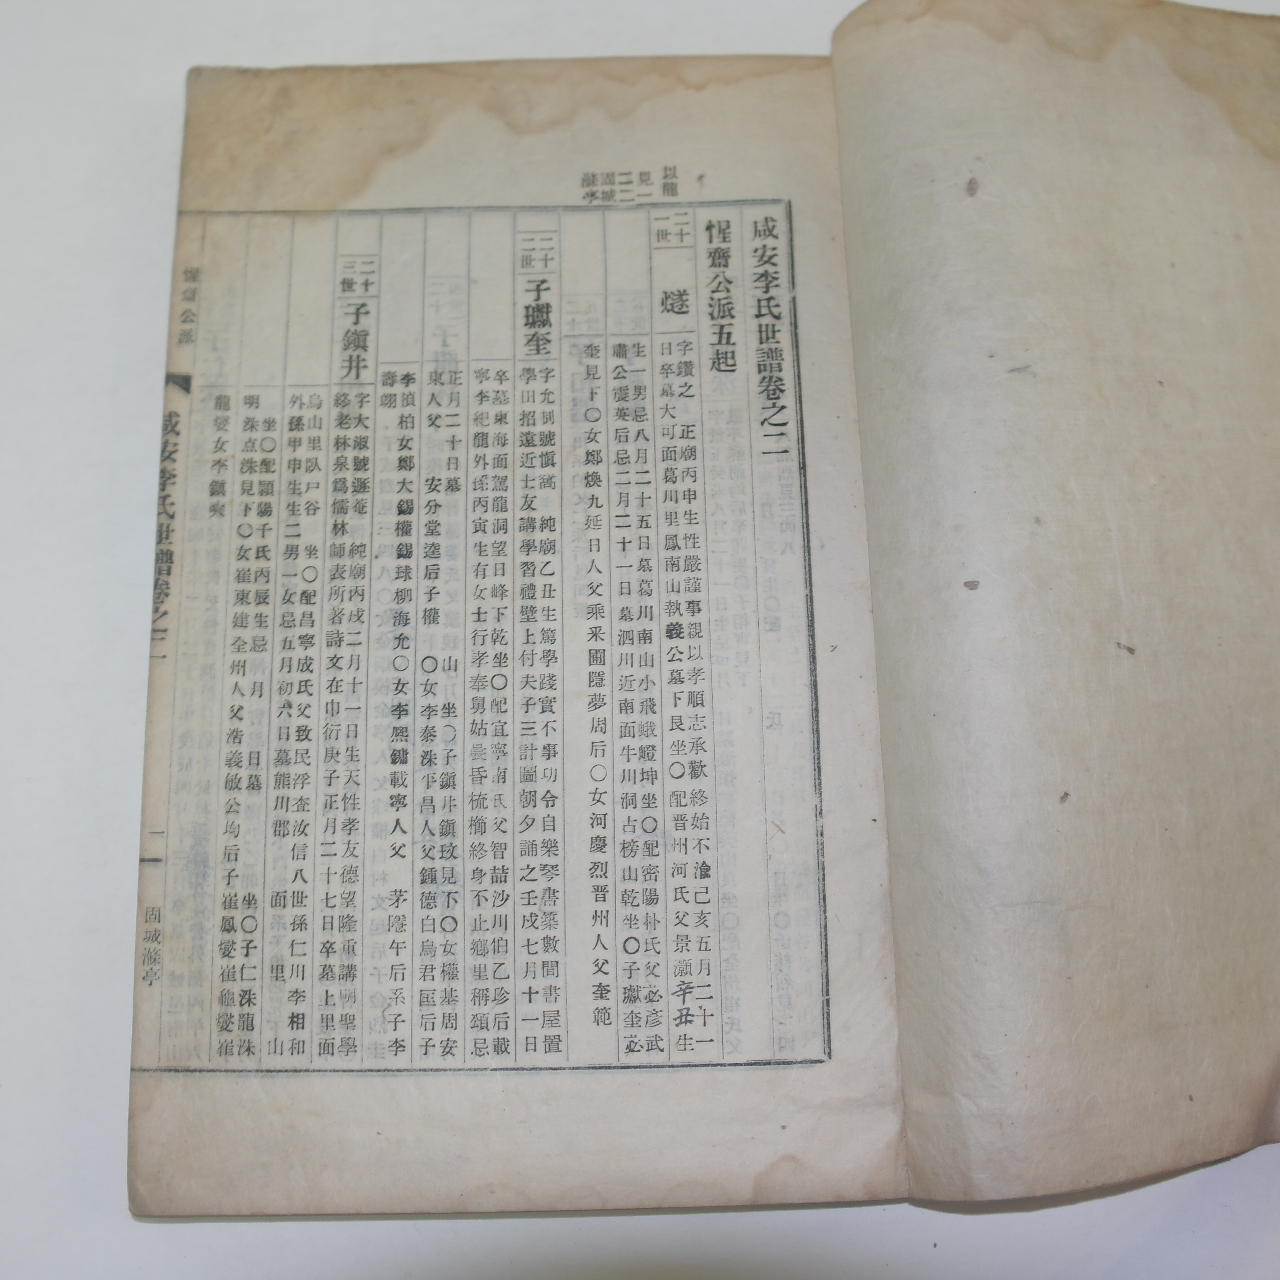 以龍
見一
二二
固城
滌亭
咸安李氏世譜卷之二
惺齋公派五起
二十一世
燧
字鑽之 正廟丙申生性嚴謹事親以孝順志承歡終始不渝己亥五月二十一
日卒墓大可面葛川里鳳南山執義公墓下艮坐〇配晋州河氏父景灝辛丑生
生一男忌八月二十五日墓葛川南山小飛蛾嶝坤坐〇配密陽朴氏父必彦武
肅公震英后忌二月二十一日墓泗川近南面牛川洞占榜山乾坐〇子瓛奎必
奎見下〇女鄭煥九延日人父乘釆圃隱夢周后〇女河慶烈晋州人父奎範
二十二世
子瓛奎
字允則號愼窩 純廟乙丑生篤學踐實不事功令自樂琴書築數間書屋置
學田招遠近士友講學習禮壁上付夫子三計圖朝夕誦之壬戌七月十一日
卒墓東海面駕龍洞望日峰下乾坐〇配宜寧南氏父智喆沙川伯乙珍后載
寧李紀龍外孫丙寅生有女士行孝奉舅姑晨昏梳櫛終身不止鄕里稱頌忌
正月二十日墓 山 坐〇子鎭井鎭玫見下〇女權基周安
東人父 安分堂逵后子權 〇女李泰洙平昌人父鍾德白烏君匡后子
李滇柏女鄭大錫權錫球柳海允〇女李熙鏞載寧人父 茅隱午后系子李
壽翊
二十三世
子鎭井
字大淑號遯菴 純廟丙戌二月十一日生天性孝友德望隆重講明聖學
終老林泉爲儒林師表所著詩文在巾衍庚子正月二十七日卒墓上里面
烏山里臥戶谷 坐〇配昌寧成氏父致民浮査汝信八世孫仁川李相和
外孫甲申生生二男一女忌五月初六日墓熊川郡 面 里 山
坐〇配潁陽千氏丙辰生忌 月 日墓 坐〇子仁洙龍洙
明洙点洙見下〇女崔東建全州人父浩義敏公均后子崔鳳燮崔龜燮崔
龍燮女李鎭奭
惺齋公派
咸安李氏世譜卷之二
一
固城滌亭